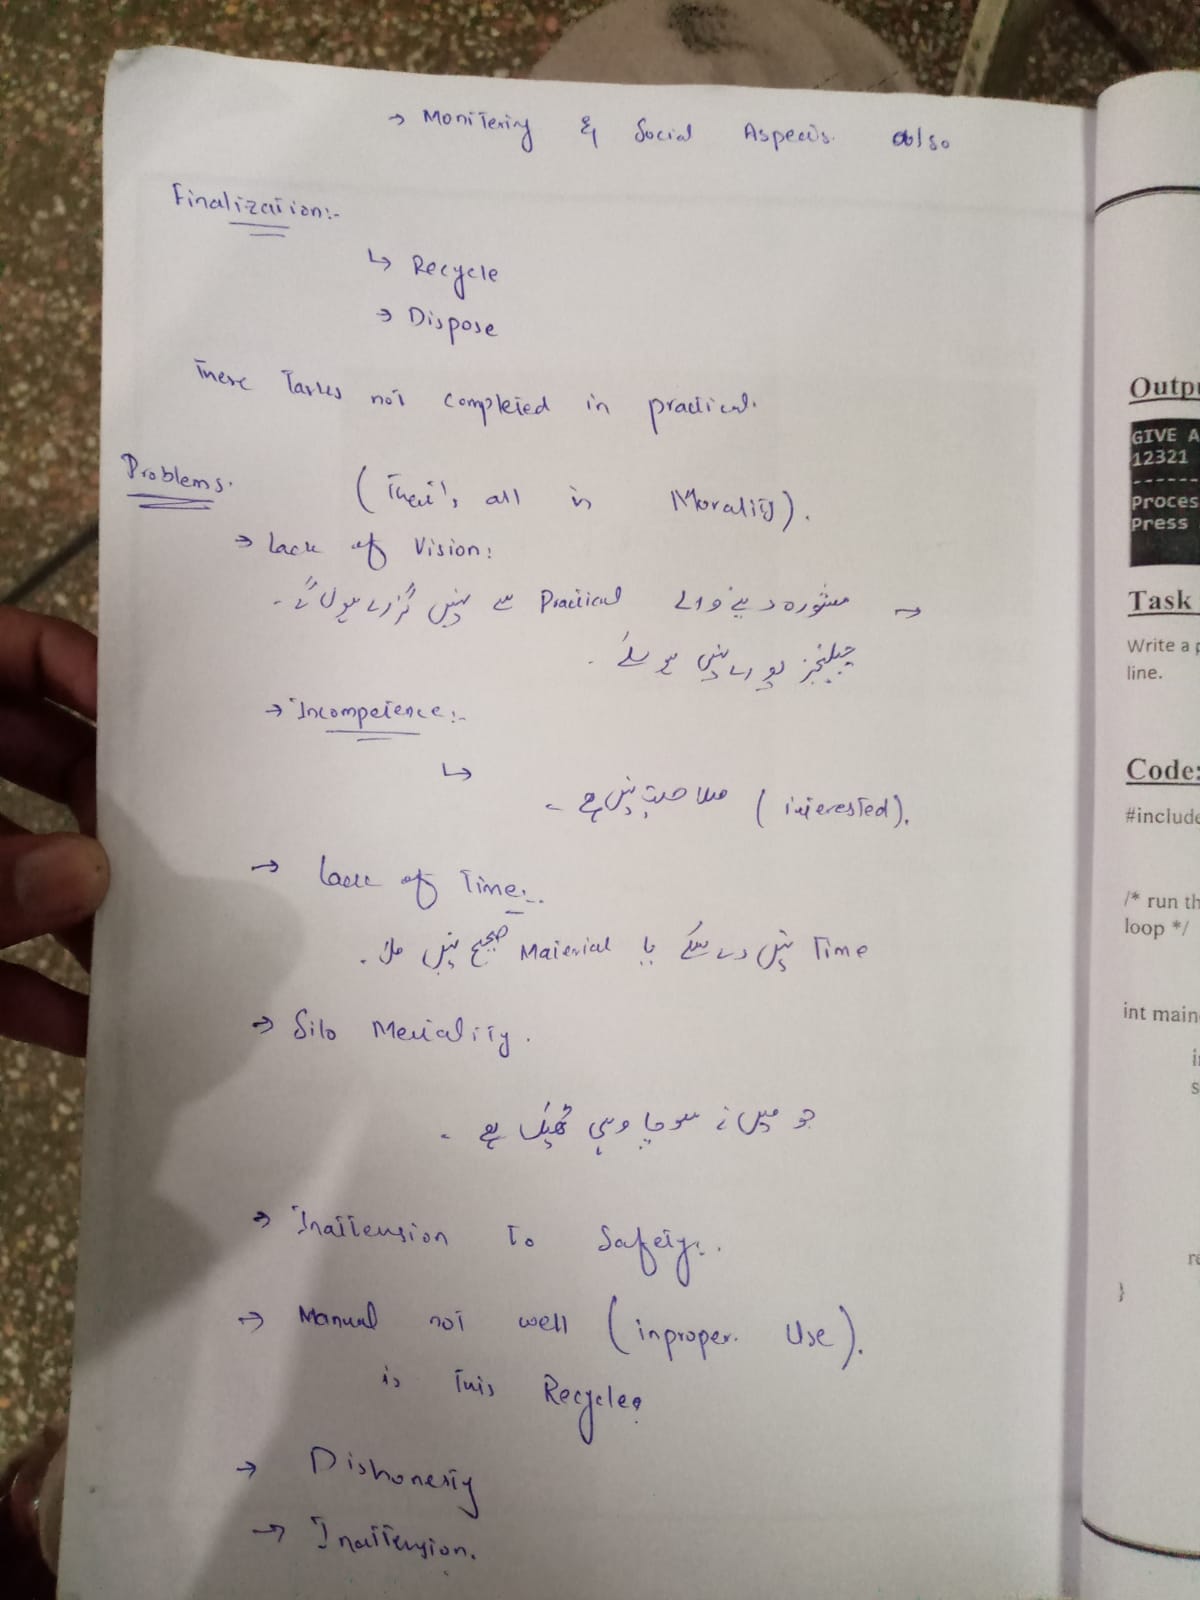 → Monitering & Social Aspects. also
Finalization:-
↳ Recycle
→ Dispose
These Tasks not completed in practical.
Problems.
(That's all in Morality).
→ Lack of Vision:
→ مشورہ دینے والے Practical سے نہیں گزرے ہوں گے۔
چیلنجز پورے نہیں ہو سکے۔
→ Incompetence:-
↳
صلاحیت نہیں ہے۔ (interested).
→ Lack of Time:-
Time نہیں دے سکے یا Material صحیح نہیں ملا۔
→ Silo Mentality.
جو میں نے سوچا وہی ٹھیک ہے۔
→ Inattension To Safety:.
→ Manual not well (inproper. Use).
is This Recycle?
→ Dishonesty
→ Inattension.
Outpu
GIVE A
12321
-------
Proces
Press
Task
Write a p
line.
Code:
#include
/* run th
loop */
int main
i
s
re
}